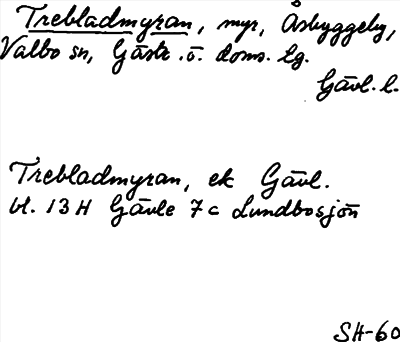 Trebladmyran, myr, Åsbyggeby,
Valbo sn, Gästr. ö. doms. lg.
Gävl. l.
Trebladmyran, ek Gävl.
bl. 13 H Gävle 7 c Lundbosjön
SH-60